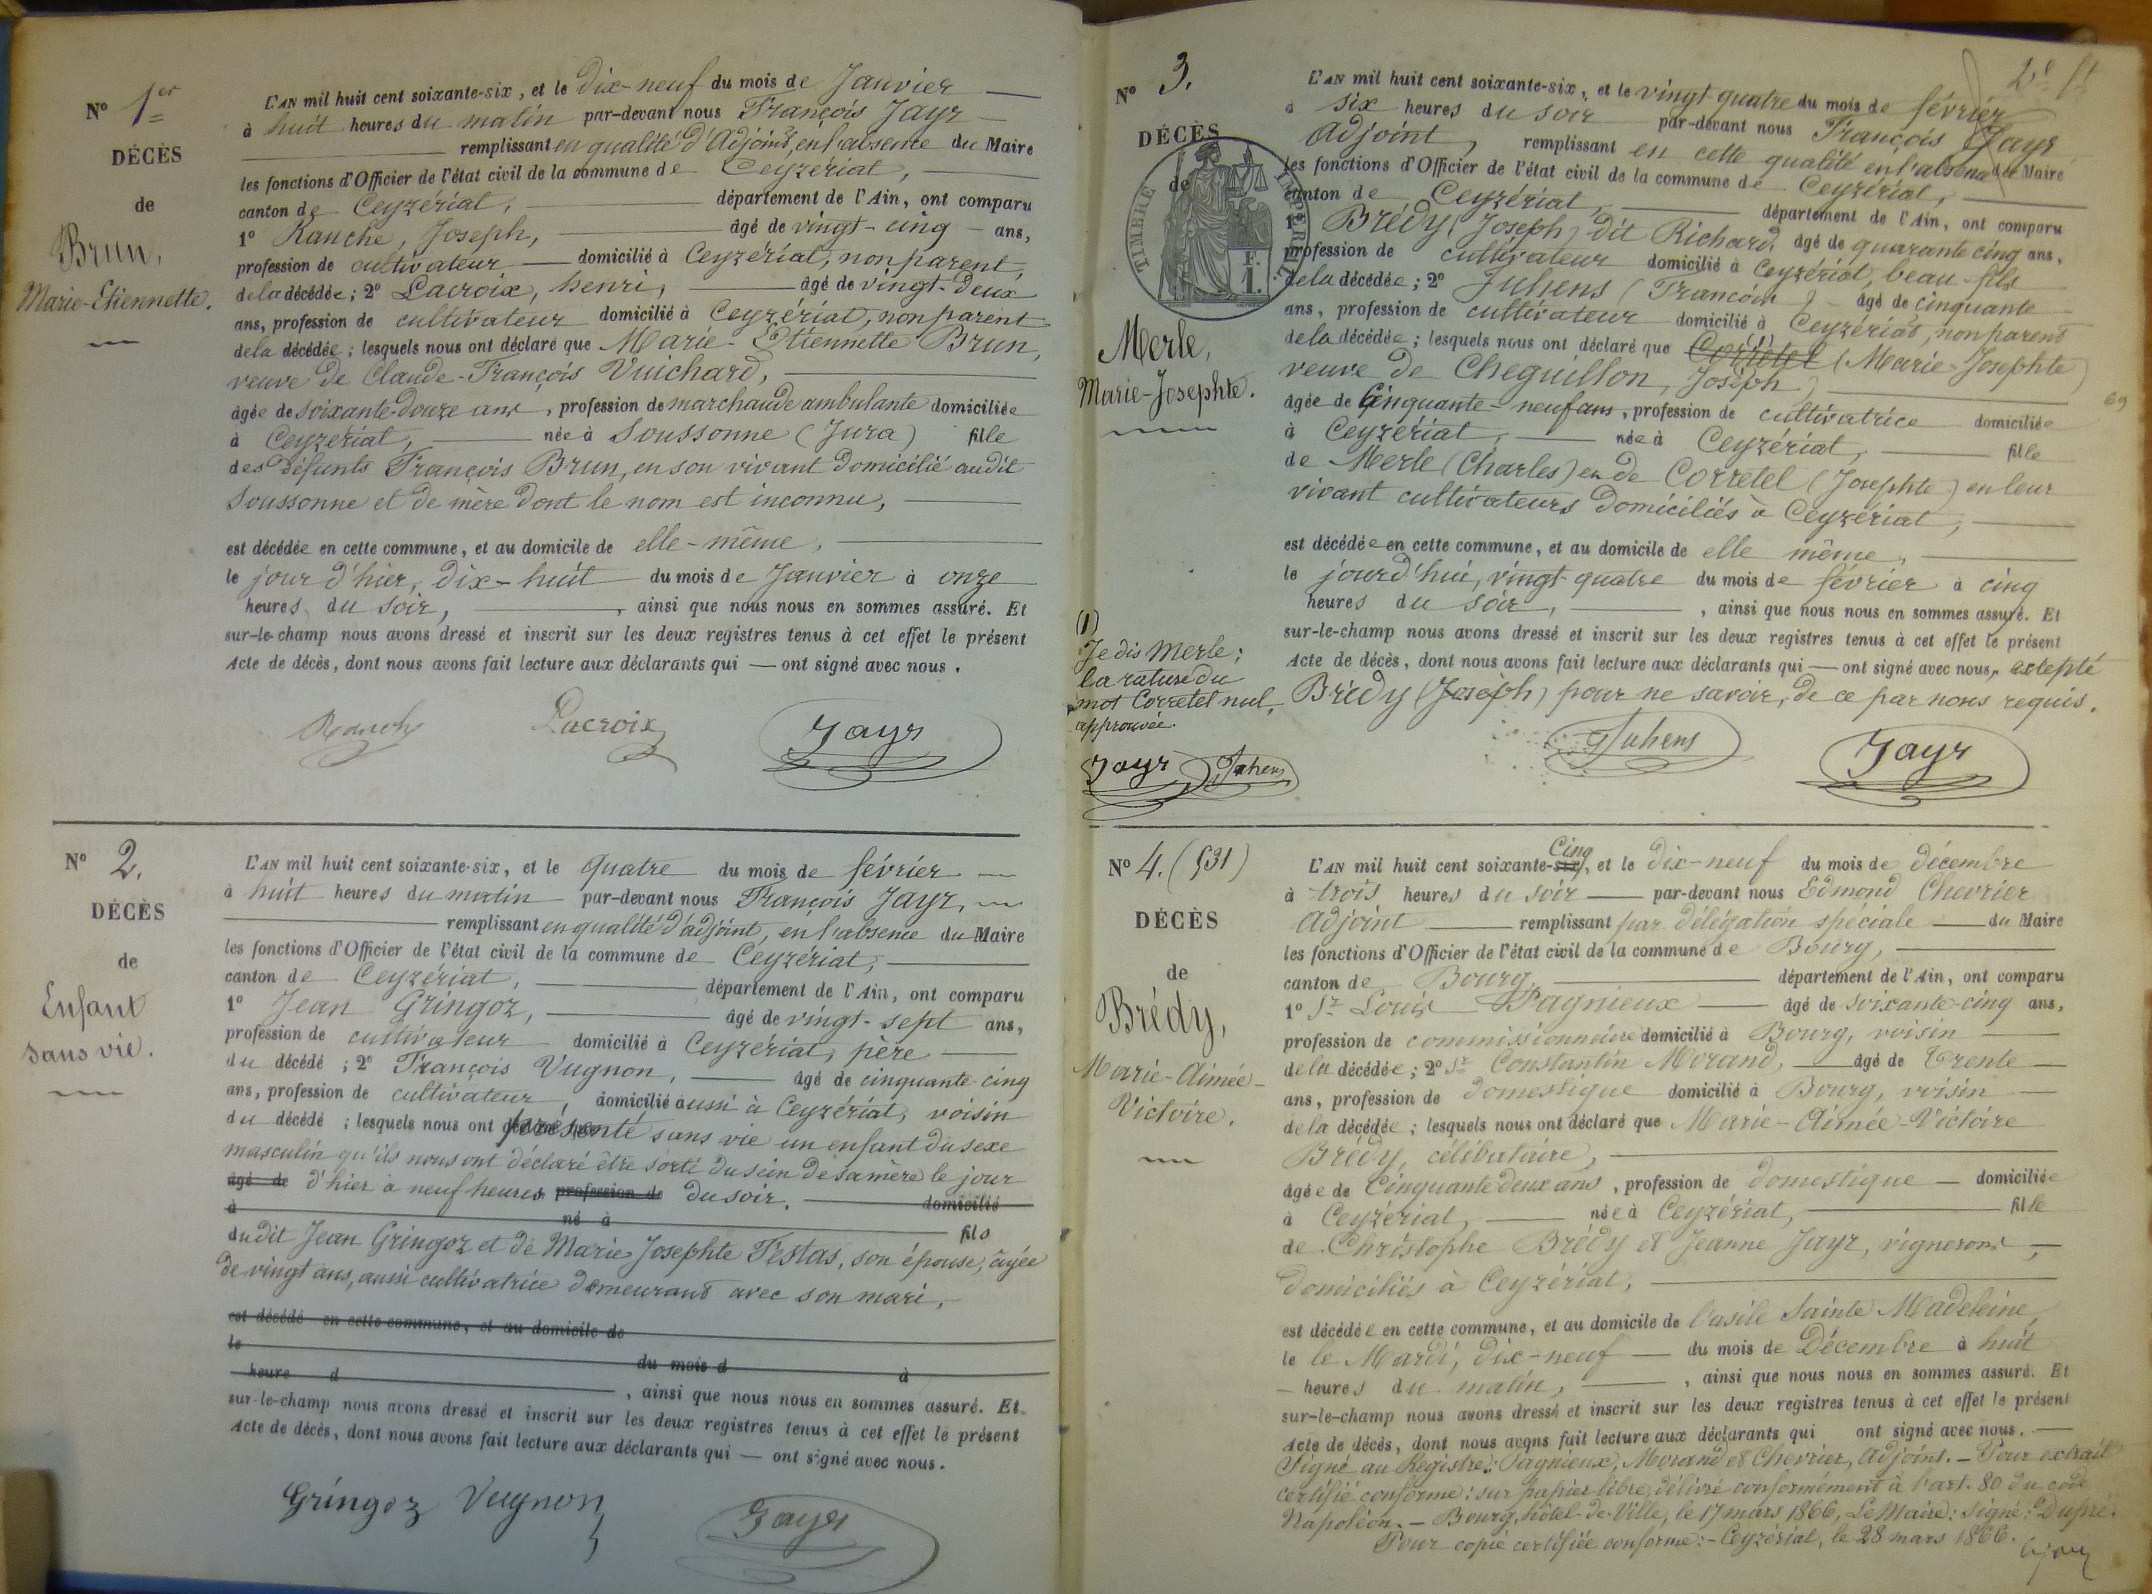 N° 1er
DÉCÈS
de
Brun,
Marie-Etiennette.
L'AN mil huit cent soixante-six, et le dix-neuf du mois de Janvier
à huit heures du matin par-devant nous François Jayr
remplissant en qualité d'Adjoint, en l'absence du Maire
les fonctions d'Officier de l'état civil de la commune de Ceyzériat,
canton de Ceyzériat, département de l'Ain, ont comparu
1° Ranche, Joseph, âgé de vingt-cinq ans,
profession de cultivateur domicilié à Ceyzériat, non parent,
de la décédée; 2° Lacroix, henri, âgé de vingt-deux
ans, profession de cultivateur domicilié à Ceyzériat, non parent
de la décédée; lesquels nous ont déclaré que Marie-Etiennette Brun,
veuve de Claude-François Vuichard,
âgée de soixante-douze ans, profession de marchande ambulante domiciliée
à Ceyzériat, née à Soussonne (Jura) fille
des défunts François Brun, en son vivant domicilié audit
Soussonne et de mère dont le nom est inconnu,
est décédée en cette commune, et au domicile de elle-même,
le jour d'hier, dix-huit du mois de Janvier à onze
heures du soir, , ainsi que nous nous en sommes assuré. Et
sur-le-champ nous avons dressé et inscrit sur les deux registres tenus à cet effet le présent
Acte de décès, dont nous avons fait lecture aux déclarants qui — ont signé avec nous.
Lacroix Jayr
N° 2.
DÉCÈS
de
Enfant
sans vie.
L'AN mil huit cent soixante-six, et le quatre du mois de février
à huit heures du matin par-devant nous François Jayr,
remplissant en qualité d'adjoint, en l'absence du Maire
les fonctions d'Officier de l'état civil de la commune de Ceyzériat,
canton de Ceyzériat, département de l'Ain, ont comparu
1° Jean Gringoz, âgé de vingt-sept ans,
profession de cultivateur domicilié à Ceyzériat, père
du décédé; 2° François Vugnon, âgé de cinquante-cinq
ans, profession de cultivateur, domicilié aussi à Ceyzériat, voisin
du décédé; lesquels nous ont présenté sans vie un enfant du sexe
masculin qu'ils nous ont déclaré être sorti du sein de sa mère le jour
âgé de d'hier a neuf heures profession de du soir. domicilié
à né à fils
du dit Jean Gringoz et de Marie Josephte Testas, son épouse, âgée
de vingt ans, aussi cultivatrice demeurant avec son mari,
est décédé en cette commune, et au domicile de
le du mois d à
heure d , ainsi que nous nous en sommes assuré. Et
sur-le-champ nous avons dressé et inscrit sur les deux registres tenus à cet effet le présent
Acte de décès, dont nous avons fait lecture aux déclarants qui — ont signé avec nous.
Gringoz Vugnon Jayr
N° 3.
DÉCÈS
de
TIMBRE IMPERIAL
F. 1.
Merle,
Marie-Josephte.
L'AN mil huit cent soixante-six, et le vingt-quatre du mois de février
à six heures du soir par-devant nous François Jayr
Adjoint, remplissant en cette qualité en l'absence du Maire
les fonctions d'Officier de l'état civil de la commune de Ceyzériat,
canton de Ceyzériat, département de l'Ain, ont comparu
1° Brédy, (Joseph) dit Richard, âgé de quarante cinq ans,
profession de cultivateur domicilié à Ceyzériat, beau-fils
de la décédée; 2° Juhens (François) âgé de cinquante
ans, profession de cultivateur domicilié à Ceyzériat, non parent
de la décédée; lesquels nous ont déclaré que Corretel (1) (Marie-Josephte)
veuve de Cheguillon, Joseph)
âgée de Cinquante-neuf ans, profession de cultivatrice domiciliée
69
à Ceyzériat, née à Ceyzériat, fille
de Merle (Charles) et de Corretel (Josephte) en leur
vivant cultivateurs domiciliés à Ceyzériat,
est décédée en cette commune, et au domicile de elle même,
le jourd'hui, vingt-quatre du mois de février à cinq
heures du soir, , ainsi que nous nous en sommes assuré. Et
sur-le-champ nous avons dressé et inscrit sur les deux registres tenus à cet effet le présent
Acte de décès, dont nous avons fait lecture aux déclarants qui — ont signé avec nous, excepté
Brédy (Joseph) pour ne savoir, de ce par nous requis.
(1)
Je dis Merle;
la rature du
mot Corretel nul,
approuvée.
Jayr Juhens
Juhens Jayr
N° 4. (531)
DÉCÈS
de
Brédy,
Marie-Aimée-
Victoire.
L'AN mil huit cent soixante-six Cinq, et le dix-neuf du mois de décembre
à trois heures du soir par-devant nous Edmond Chevrier
Adjoint remplissant par délégation spéciale du Maire
les fonctions d'Officier de l'état civil de la commune de Bourg,
canton de Bourg, département de l'Ain, ont comparu
1° Sr Louis Pagnieux âgé de soixante-cinq ans,
profession de commissionnaire domicilié à Bourg, voisin
de la décédée; 2° Sr Constantin Morand, âgé de Trente
ans, profession de domestique domicilié à Bourg, voisin
de la décédée; lesquels nous ont déclaré que Marie-Aimée-Victoire
Brédy, célibataire,
âgée de Cinquante deux ans, profession de domestique — domiciliée
à Ceyzériat, née à Ceyzériat, fille
de Christophe Brédy et Jeanne Jayr, vignerons,
domiciliés à Ceyzériat,
est décédée en cette commune, et au domicile de l'asile Sainte Madeleine,
le le Mardi, dix-neuf du mois de Décembre à huit
heures du matin, , ainsi que nous nous en sommes assuré. Et
sur-le-champ nous avons dressé et inscrit sur les deux registres tenus à cet effet le présent
Acte de décès, dont nous avons fait lecture aux déclarants qui ont signé avec nous.
Signé au Registre: Pagnieux, Morand et Chevrier, Adjoint. — Pour extrait
certifié conforme: sur papier libre, délivré conformément à l'art. 80 du code
Napoléon. — Bourg, hôtel de Ville, le 17 mars 1866, Le Maire: signé: Dupré.
Pour copie certifiée conforme: - Ceyzériat, le 28 mars 1866.